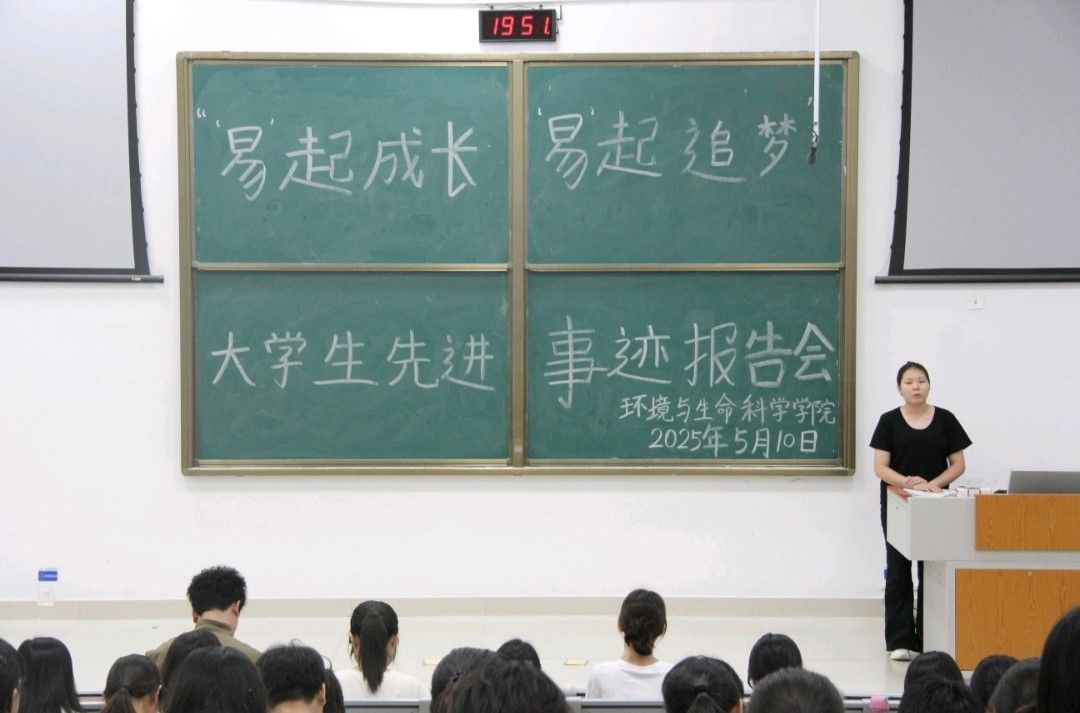 19 51
“‘易’起成长 ‘易’起追梦”
大学生先进事迹报告会
环境与生命科学学院
2025年5月10日